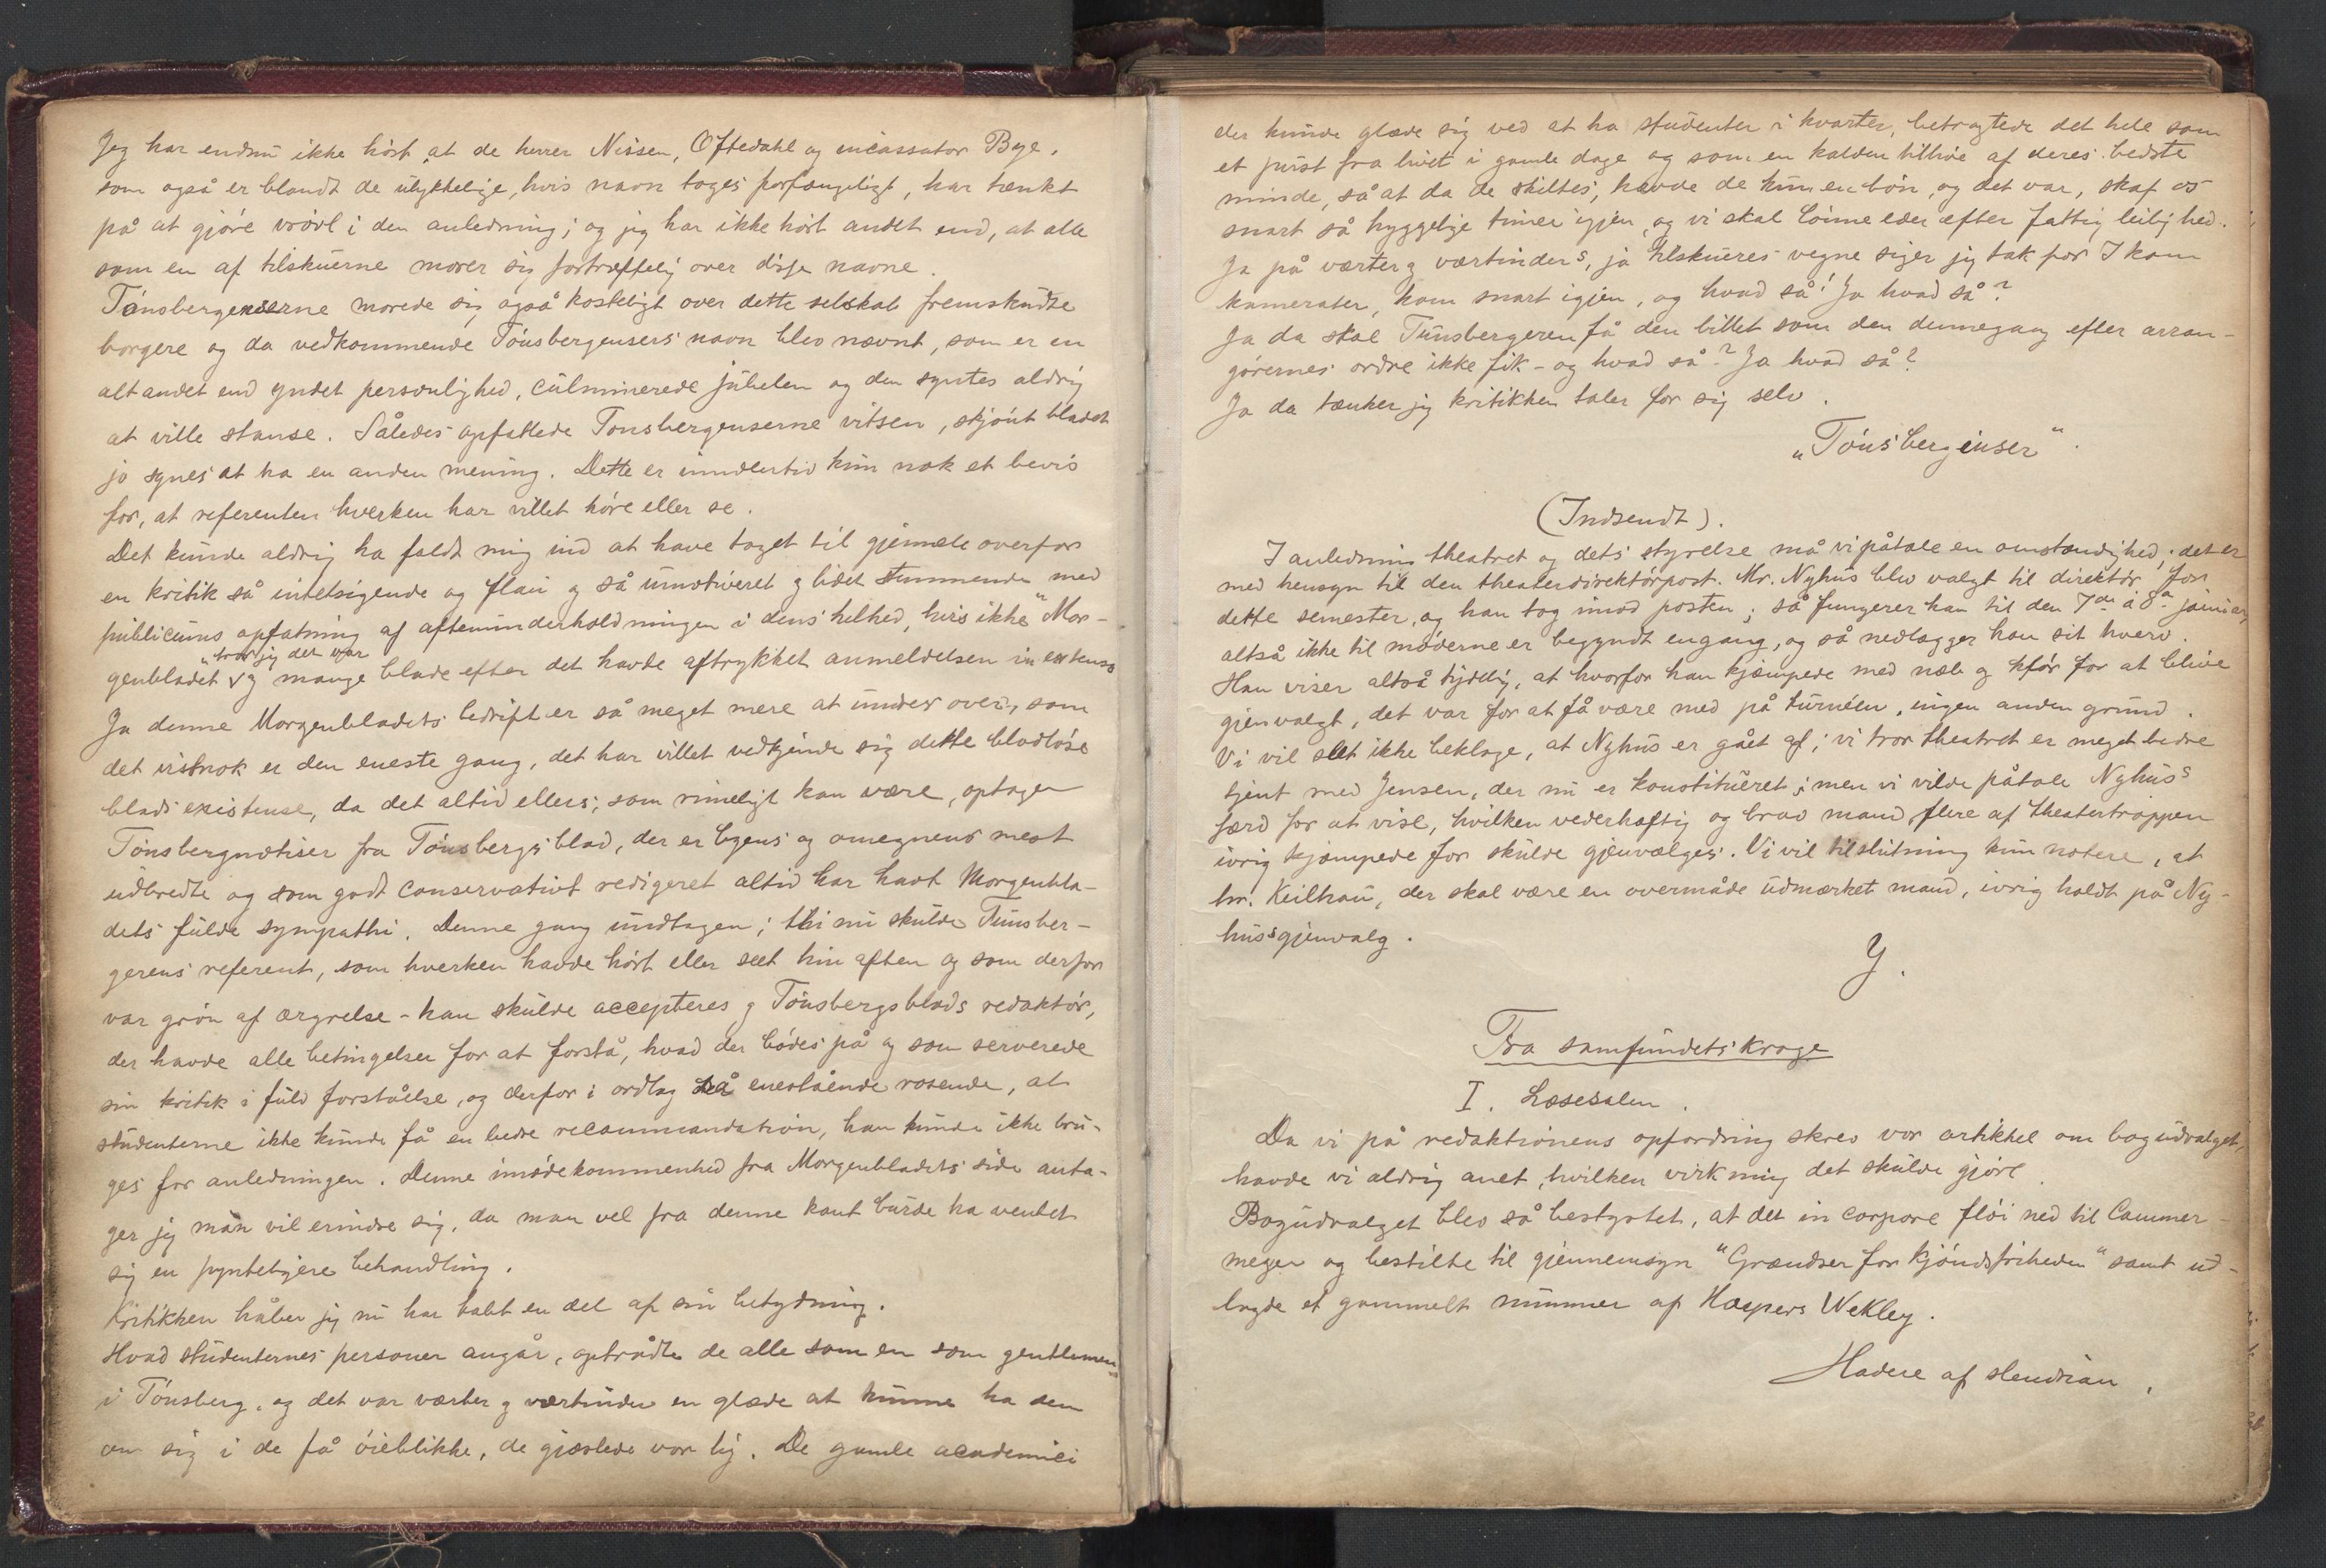 Jeg har endnu ikke hört, at de herrer Nissen, Oftedahl og incassator Bye,
som også er blandt de ulykkelige, hvis navn toges forfængeligt, har tænkt
på at gjöre vrövl i den anledning; og jeg har ikke hört andet end, at alle
som en af tilskuerne morer sig fortræffelig over disse navne.
Tönsbergenserne morede sig også kosteligt over dette selskab fremskudte
borgere og da vedkommende Tönsbergensers navn blev nævnt, som er en
alt andet end yndet personlighed, culminerede jubelen og den syntes aldrig
at ville stanse. Således opfattede Tonsbergenserne vitsen, skjönt bladet
jo synes at ha en anden mening. Dette er imidlertid kun nok et bevis
for, at referenten hverken har villet höre eller se.
Det kunde aldrig ha faldt mig ind at have taget til gjenmæle overfor
en kritik så intetsigende og flau og så umotiveret og lidet stemmende med
publicums opfatning af aftenunderholdningen i dens helhed, hvis ikke "Mor-
genbladet" tror jeg det var og mange blade efter det havde aftrykket anmeldelsen in extenso
Ja denne Morgenbladets bedrift er så meget mere at undres over, som
det vistnok er den eneste gang, det har villet vedkjende sig dette bladlöse
blads existense, da det altid ellers, som rimeligt kan være, optager
Tönsbergnotiser fra Tönsbergs blad, der er byens og omegnens mest
udbredte og som godt conservativt redigeret altid har havt Morgenbla-
dets fulde sympathi. Denne gang undtagen; thi nu skulde Tunsber-
gerens referent, som hverken havde hört eller seet hin aften og som derfor
var grön af ærgrelse - han skulde accepteres og Tönsbergsblads redaktör,
der havde alle betingelser for at forstå, hvad der bödes på og som serverede
sin kritik i fuld forståelse, og derfor i ordlag så enestående rosende, at
studenterne ikke kunde få en bedre recommandation, han kunde ikke bru-
ges for anledningen. Denne imödekommenhed fra Morgenbladets side anta-
ger jeg man vil erindre sig, da man vel fra denne kant burde ha ventet
sig en pynteligere behandling.
Kritikken håber jeg nu har tabt en del af sin betydning.
Hvad studenternes personer angår, optrådte de alle som en som gentlemen
i Tönsberg, og det var værter og værtinder en glæde at kunne ha dem
om sig i de få öieblikke, de gjæstede vor by. De gamle academici
der kunde glæde sig ved at ha studenter i kvarter, betragtede det hele som
et pust fra livet i gamle dage og som en kalden tillive af deres bedste
minde, så at da de skiltes, havde de kun en bön, og det var, skaf os
snart så hyggelige timer igjen, og vi skal lönne eder efter fattig leilighed.
Ja på værter og værtinders, ja tilskueres vegne siger jeg tak for I kom
kamerater, kom snart igjen, og hvad så! Ja hvad så?
Ja da skal Tunsbergeren få den billet som den dennegang efter arran-
görernes ordre ikke fik - og hvad så? Ja hvad så?
Ja da tænker jeg kritikken taler for sig selv.
"Tönsbergenser".
(Indsendt).
I anledning theatret og dets styrelse må vi påtale en omstændighed; det er
med hensyn til den theaterdirektörpost. Mr. Nyhus blev valgt til direktör for
dette semester, og han tog imod posten; så fungerer han til den 7de à 8de januar,
altså ikke til möderne er begyndt engang, og så nedlægger han sit hverv.
Han viser altså tydelig, at hvorfor han kjæmpede med næb og klör for at blive
gjenvalgt, det var for at få være med på turnéen, ingen anden grund.
Vi vil slet ikke beklage, at Nyhus er gået af; vi tror theatret er meget bedre
tjent med Jensen, der nu er konstitueret; men vi vilde påtale Nyhus's
færd for at vise, hvilken vederhæftig og brav mand flere af theatertroppen
ivrig kjæmpede for skulde gjenvælges. Vi vil tilslutning kun notere, at
hr. Keilhau, der skal være en overmåde udmærket mand, ivrig holdt på Ny-
hus's gjenvalg.
Y.
Fra samfundets kroge
I. Læsesalen.
Da vi på redaktionens opfordring skrev vor artikkel om bogudvalget,
havde vi aldrig anet, hvilken virkning det skulde gjöre.
Bogudvalget blev så bestyrtet, at det in corpore flöi ned til Cammer-
meyer og bestilte til gjennemsyn "Grændser for kjöndsfriheden" samt ud-
lagde et gammelt nummer af Harpers Wekley.